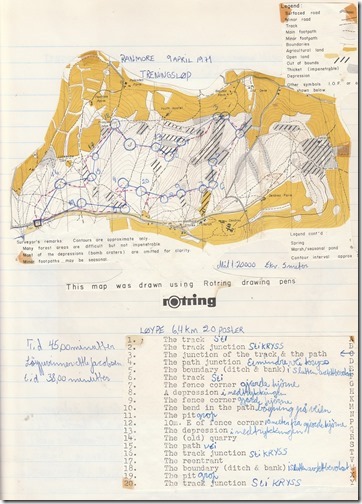 Legend:
Surfaced road
Minor road
Track
Main footpath
Minor footpath
Boundaries
Agricultural land
Open land
Out of bounds
Thicket (impenetrable)
Depression
Other symbols I.O.F.
shown below
RANMORE 9 APRIL 1979
TRENINGSLØP
Surveyor's remarks: Contours are approximate only
Many forest areas are difficult but not impenetrable
Most of the depressions (bomb craters) are omitted for clarity
Minor footpaths may be seasonal.
Legend cont'd
Spring
Marsh/seasonal pond
Contour interval approx
Mål 1:20000
This map was drawn using Rotring drawing pens
rotring
LØYPE 6,4 KM 20 POSTER
Tid 45,00 minutter
1. The track Sti
2. The track junction Sti KRYSS
3. The junction of the track & the path
4. The path junction
5. The boundary (ditch & bank)
6. The track Sti
7. The fence corner gjerde hjørne
8. A depression
9. The fence corner gjerde hjørne
10. The bend in the path
11. The pit grop
12. 10m. E of fence corner
13. The depression
14. The (old) quarry
15. The path vei
16. The track junction Sti KRYSS
17. The reentrant
18. The boundary (ditch & bank)
19. The pit grop
20. The track junction Sti KRYSS